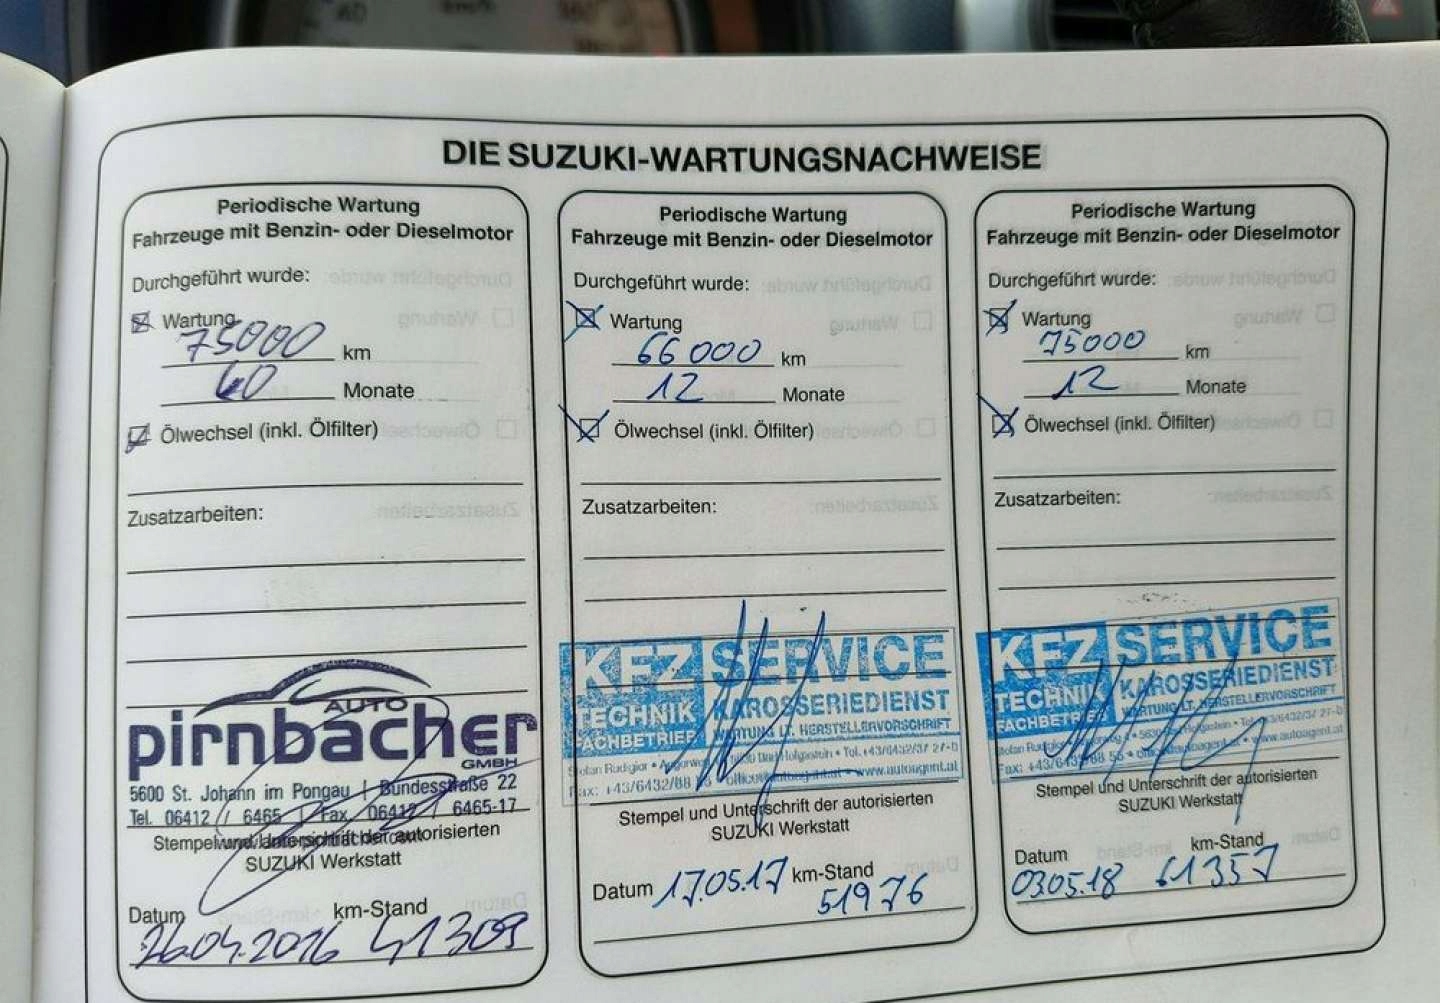 DIE SUZUKI-WARTUNGSNACHWEISE
Periodische Wartung
Fahrzeuge mit Benzin- oder Dieselmotor
Durchgeführt wurde:
Wartung
75000 km
Monate
Ölwechsel (inkl. Ölfilter)
Zusatzarbeiten:
AUTO
pirnbacher
GMBH
5600 St. Johann im Pongau | Bundesstraße 22
Tel. 06412 / 6465 | Fax. 06412 / 6465-17
Stempel und Unterschrift der autorisierten
SUZUKI Werkstatt
Datum km-Stand
26.04.2016 41309
Periodische Wartung
Fahrzeuge mit Benzin- oder Dieselmotor
Durchgeführt wurde:
Wartung
66000 km
12 Monate
Ölwechsel (inkl. Ölfilter)
Zusatzarbeiten:
KFZ SERVICE
TECHNIK KAROSSERIEDIENST
FACHBETRIEB WARTUNG LT. HERSTELLERVORSCHRIFT
Tel. +43/6432/37 27-0
Fax: +43/6432/88 www.autoagent.at
Stempel und Unterschrift der autorisierten
SUZUKI Werkstatt
Datum 17.05.17 km-Stand
51976
Periodische Wartung
Fahrzeuge mit Benzin- oder Dieselmotor
Durchgeführt wurde:
Wartung
75000 km
12 Monate
Ölwechsel (inkl. Ölfilter)
Zusatzarbeiten:
KFZ SERVICE
TECHNIK KAROSSERIEDIENST
FACHBETRIEB WARTUNG LT. HERSTELLERVORSCHRIFT
Fax: www.autoagent.at
Stempel und Unterschrift der autorisierten
SUZUKI Werkstatt
Datum km-Stand
03.05.18 61357